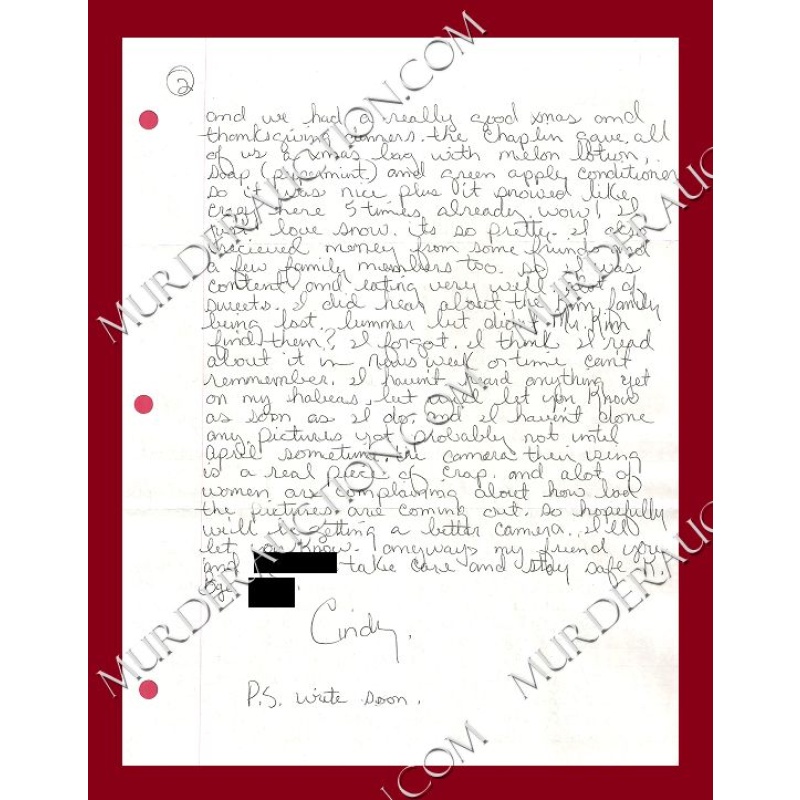 2
and we had a really good xmas and
thanksgiving dinners. the Chaplin gave all
of us a xmas bag with melon lotion,
soap (peppermint) and green apply conditioner
so it was nice plus it snowed like
crap here 5 times already wow! I
just love snow. its so pretty. I also
recieved money from some friends and
a few family members too. so I was
content and eating very well
sweets. I did hear about the Kim family
being lost summer but didn't Mr. Kim
find them? I forgot. I think I read
about it in News week or time can't
remmember. I havent heard anything yet
on my habeas, but I'll let you Know
as soon as I do, and I haven't done
any pictures yet probably not until
april sometime. the camera their using
is a real piece of crap. and alot of
women are complaining about how bad
the pictures are coming out. so hopefully
will be getting a better camera. I'll
let you Know. anyways my friend you
and take care and stay safe K.
Cindy.
P.S. write soon.
MURDERAUCTION.COM
MURDERAUCTION.COM
MURDERAUCTION.COM
MURDERAUCTION.COM